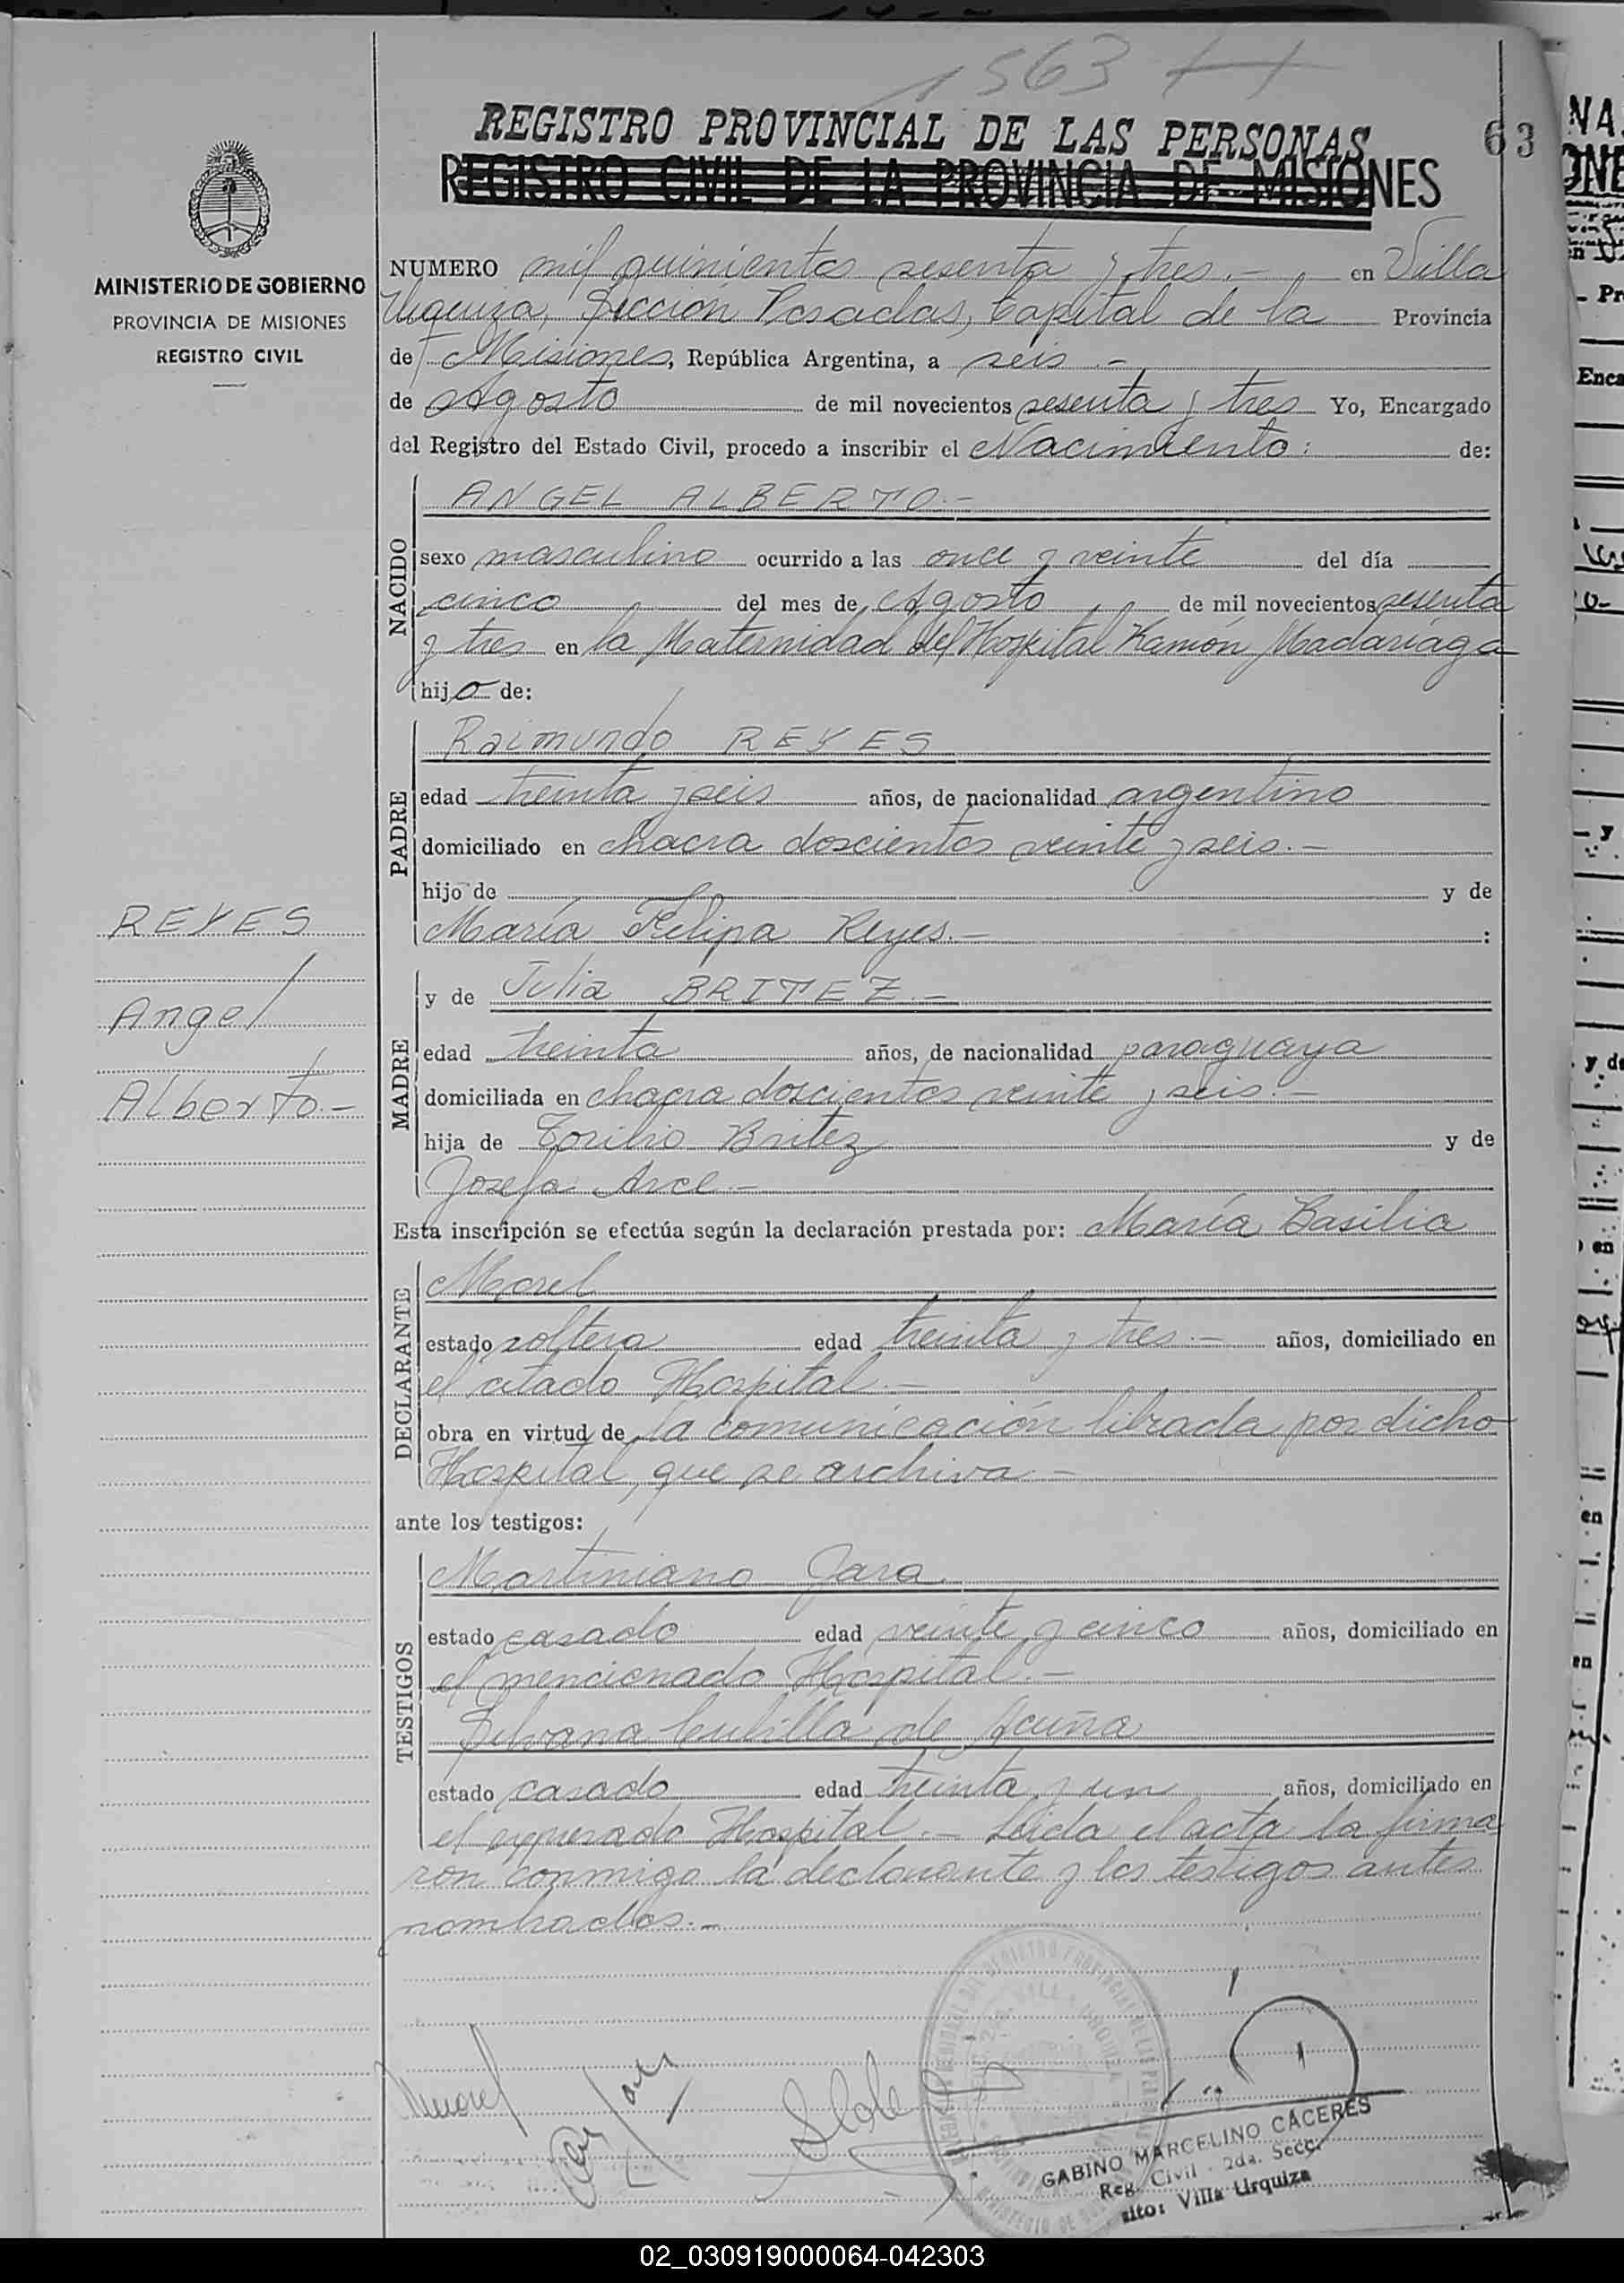 1563
REGISTRO PROVINCIAL DE LAS PERSONAS
63
REGISTRO CIVIL DE LA PROVINCIA DE MISIONES
MINISTERIO DE GOBIERNO
PROVINCIA DE MISIONES
REGISTRO CIVIL
NUMERO mil quinientos sesenta y tres.- en Villa
Urquiza, Sección Posadas, Capital de la Provincia
de Misiones, República Argentina, a seis.-
de Agosto de mil novecientos sesenta y tres Yo, Encargado
del Registro del Estado Civil, procedo a inscribir el Nacimiento: de:
NACIDO
ANGEL ALBERTO.-
sexo masculino ocurrido a las once y veinte del día
cinco del mes de Agosto de mil novecientos sesenta
y tres en la Maternidad del Hospital Ramón Madariaga
hijo de:
PADRE
Raimundo REYES
edad treinta y seis años, de nacionalidad argentino
domiciliado en chacra doscientos veinte y seis.-
hijo de y de
María Felipa Reyes.- :
MADRE
y de Julia BRITEZ.-
edad treinta años, de nacionalidad paraguaya
domiciliada en chacra doscientos veinte y seis.-
hija de Toribio Britez y de
Josefa Arce.-
REYES
Angel
Alberto.-
Esta inscripción se efectúa según la declaración prestada por: María Basilia
DECLARANTE
Morel
estado soltera edad treinta y tres.- años, domiciliado en
el citado Hospital.-
obra en virtud de la comunicación librada por dicho
Hospital, que se archiva.-
ante los testigos:
TESTIGOS
Martiniano Jara
estado casado edad veinte y cinco años, domiciliado en
el mencionado Hospital.-
Silvana de Acuña
estado casado edad treinta y un años, domiciliado en
el expresado Hospital.- Leida el acta la firma
ron conmigo la declarante y los testigos antes
nombrados.-
GABINO MARCELINO CACERES
Reg. Civil - 2da. Secc.
sito: Villa Urquiza
02_030919000064-042303